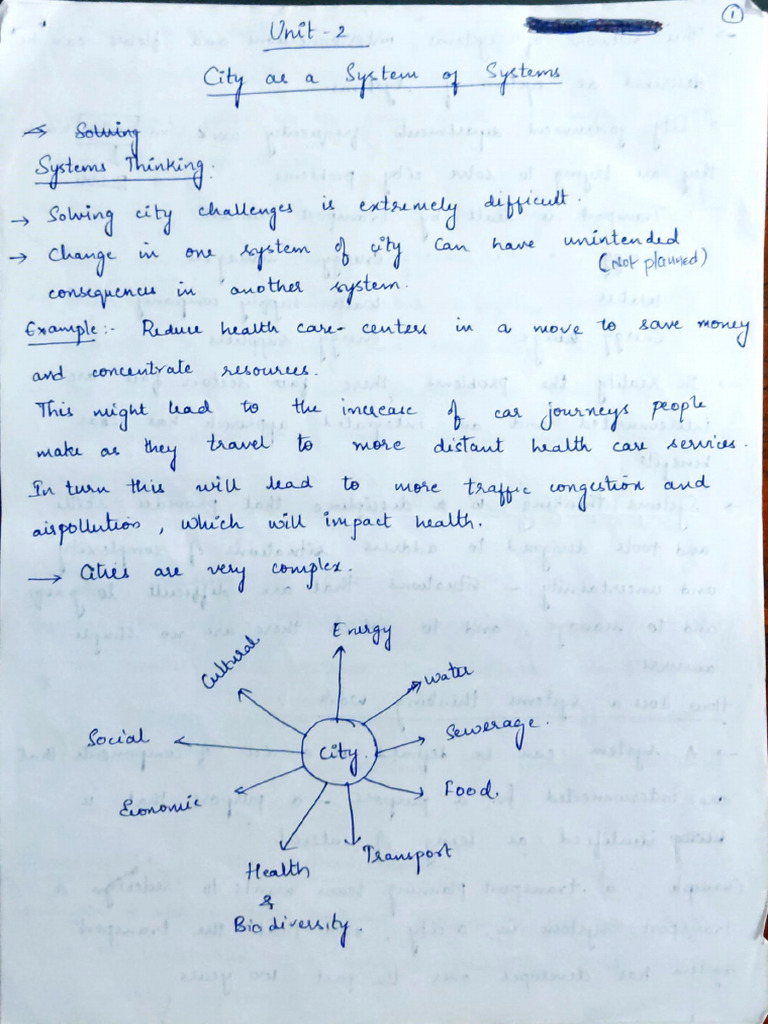 1
Unit - 2
City as a System of Systems
→ Solving
Systems Thinking.
→ Solving city challenges is extremely difficult.
→ Change in one system of city can have unintended
(Not planned)
consequences in another system.
Example :- Reduce health care- centers in a move to save money
and concentrate resources.
This might lead to the increase of car journeys people
make as they travel to more distant health care services.
In turn this will lead to more traffic congestion and
airpollution, which will impact health.
→ Cities are very complex.
Energy
Cultural
water
Social
Sewerage.
City.
Economic
Food.
Health
Transport
&
Biodiversity.